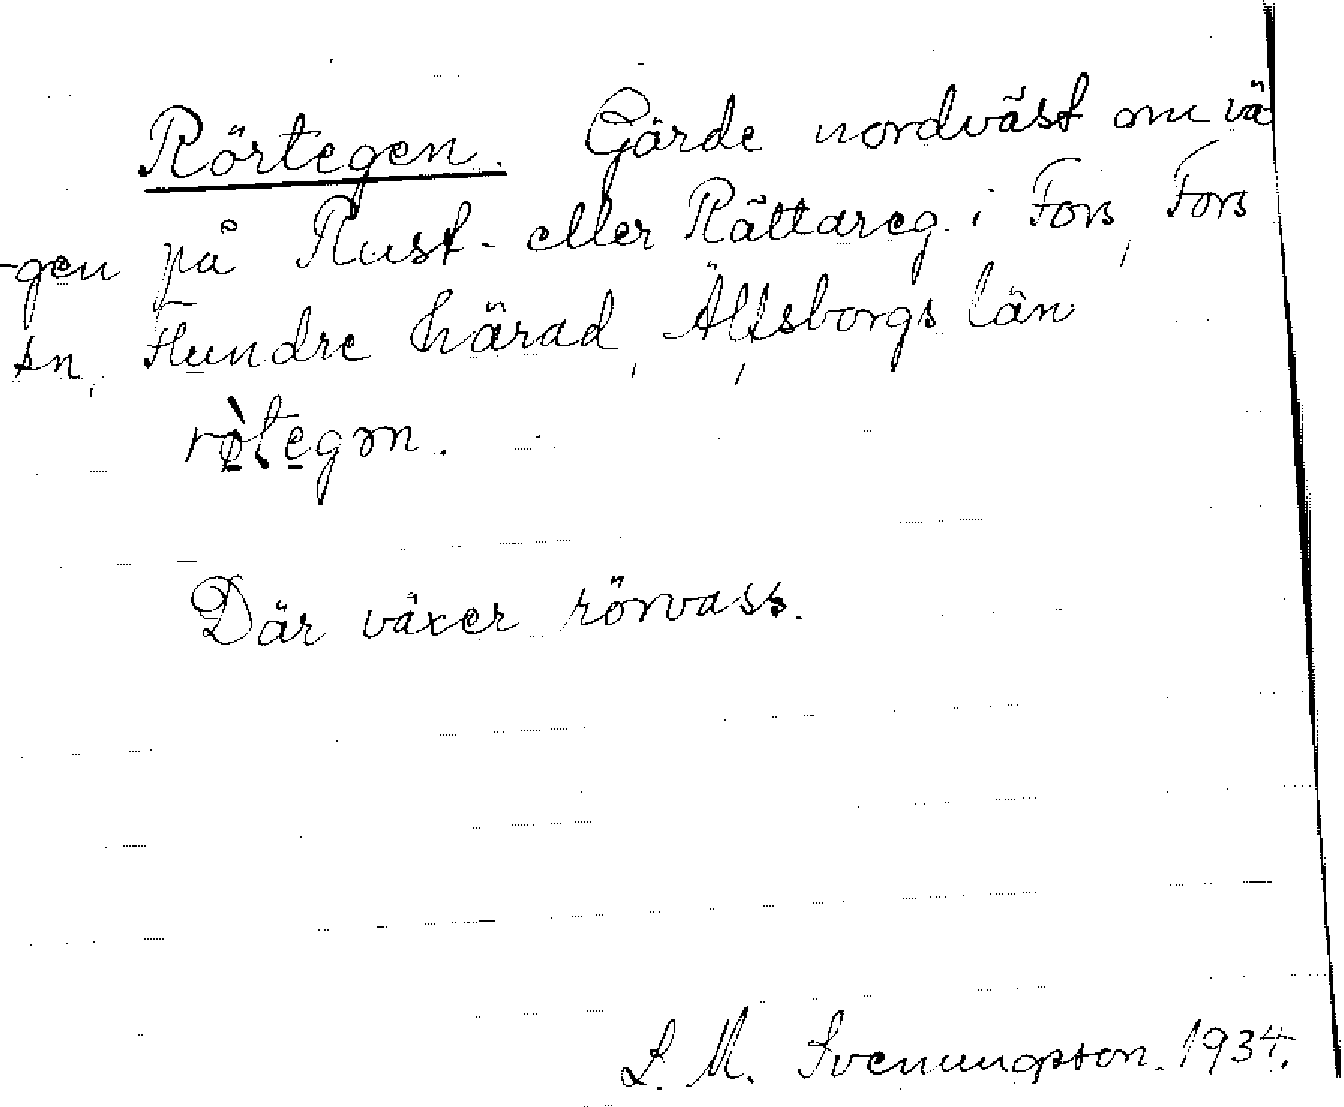 Rörtegen. Gärde nordväst om vä
-gen på Rust- eller Rättareg. i Fors, Fors
sn, Flundre härad, Älfsborgs län
ròtegən.
Där växer rörvass.
S. M. Svenungsson. 1934.